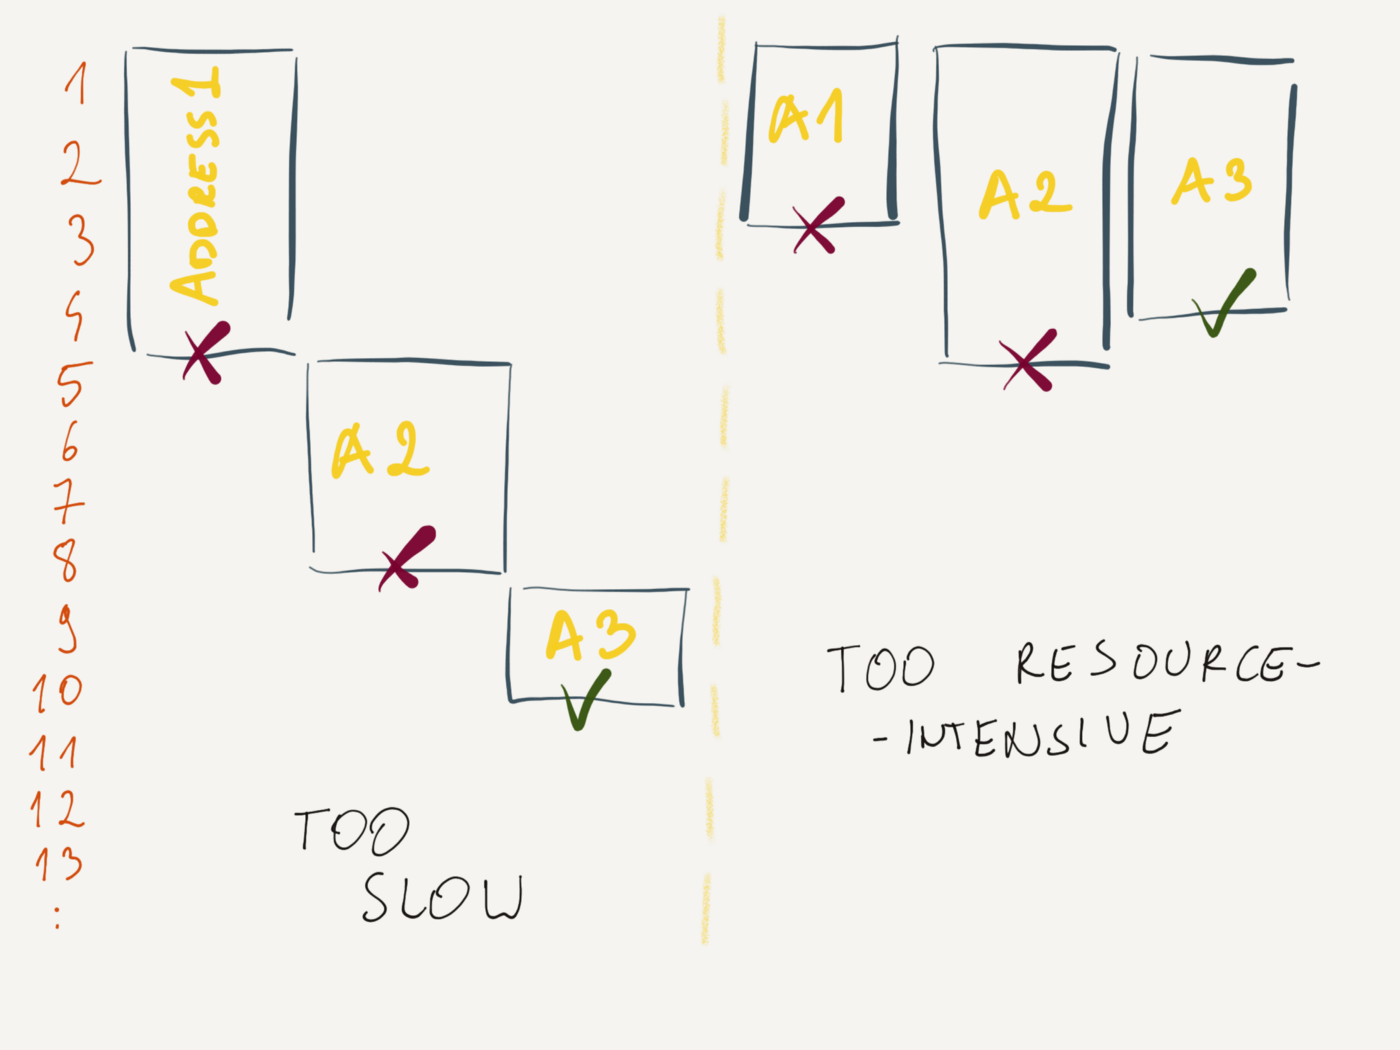 1
2
3
4
5
6
7
8
9
10
11
12
13
:
ADDRESS 1
A2
A3
TOO
SLOW
A1
A2
A3
TOO RESOURCE-
-INTENSIVE